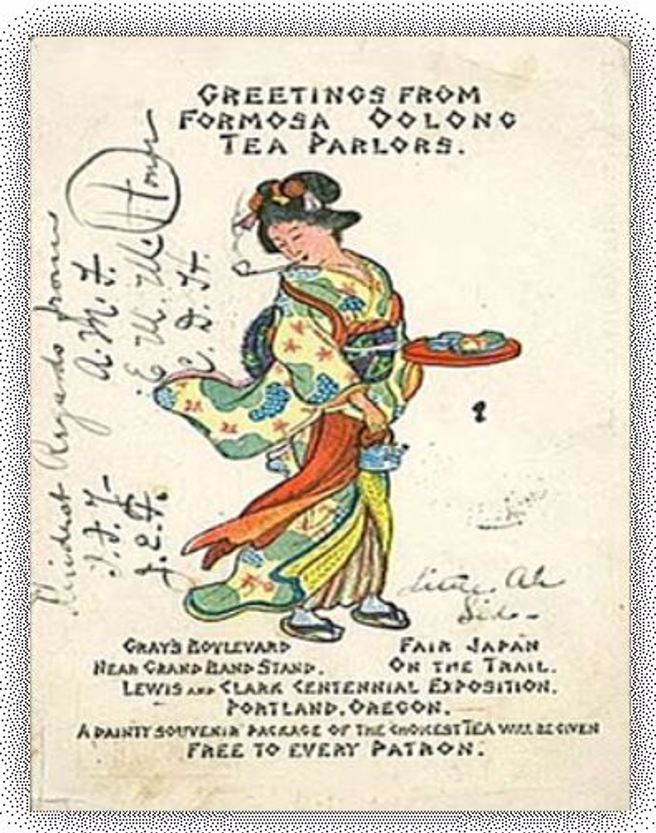 GREETINGS FROM
FORMOSA OOLONG
TEA PARLORS.
Kindest Regards from
A. M. F.
J. E. F.
GRAY'S BOVLEVARD
NEAR GRAND BAND STAND.
FAIR JAPAN
ON THE TRAIL.
LEWIS AND CLARK CENTENNIAL EXPOSITION.
PORTLAND, OREGON.
A DAINTY SOUVENIR PACKAGE OF THE CHOICEST TEA WILL BE GIVEN
FREE TO EVERY PATRON.